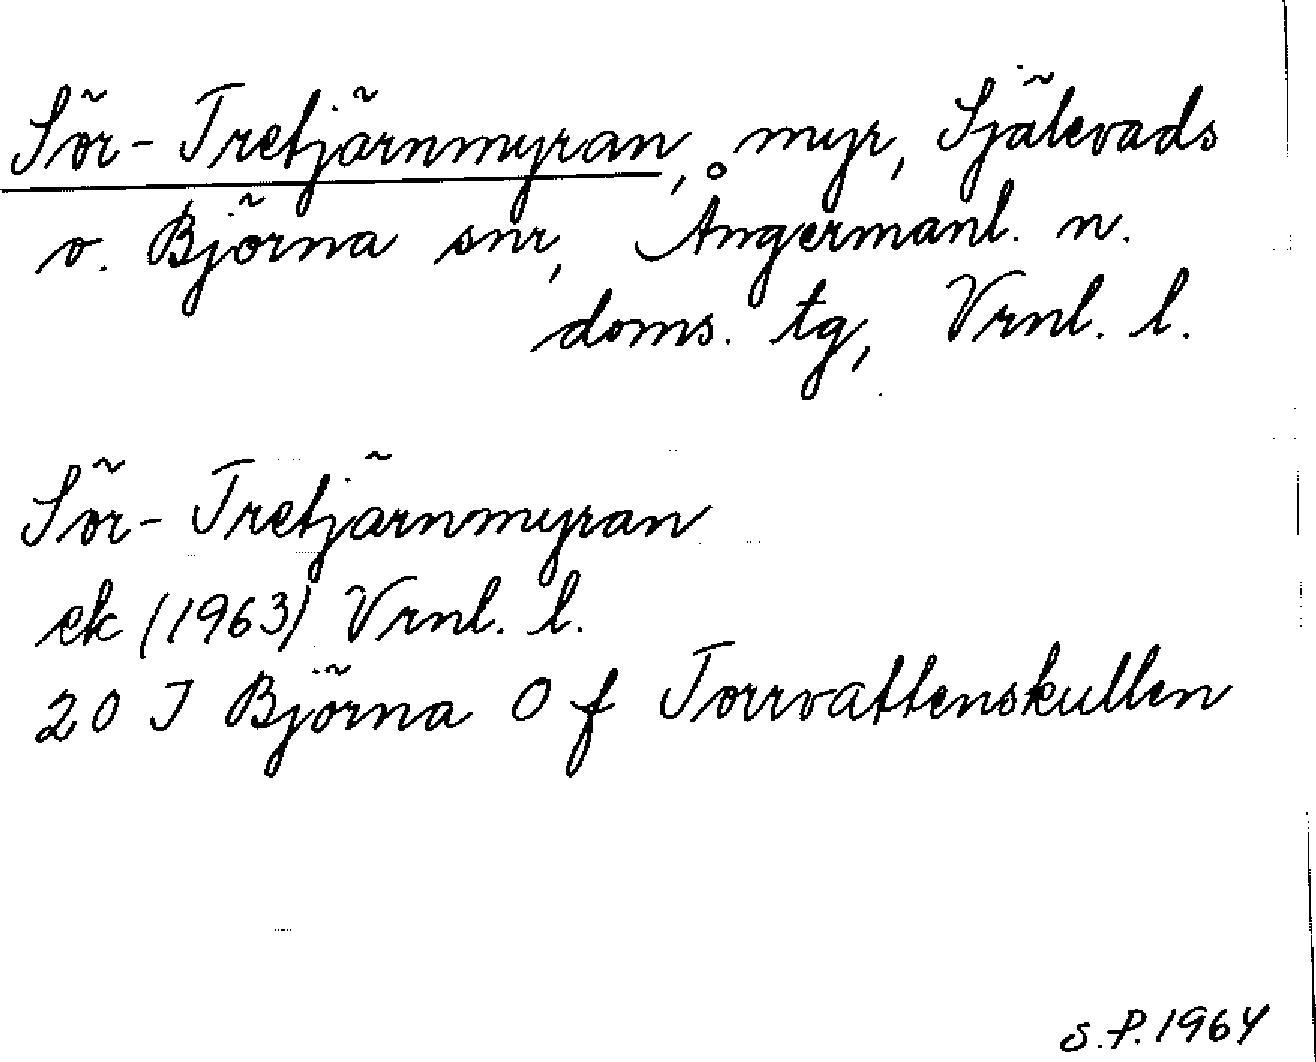 Sör-Tretjärnmyran, myr, Själevads
o. Björna snr, Ångermanl. n.
doms. tg, Vrnl. l.
Sör-Tretjärnmyran
ek (1963) Vrnl. l.
20 I Björna O f Torrvattenskullen
S.P. 1964